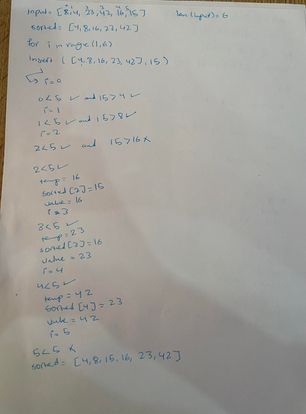 input = [8, 4, 23, 42, 16, 15] len(input) = 6
sorted = [4, 8, 16, 23, 42]
for i in range(1,6)
insert ([4, 8, 16, 23, 42], 15)
i=0
0<5 ✓ and 15>4 ✓
i=1
1<5 ✓ and 15>8 ✓
i=2
2<5 ✓ and 15>16 ✗
2<5 ✓
temp = 16
sorted[2] = 15
value = 16
i = 3
3<5 ✓
temp = 23
sorted[3] = 16
value = 23
i = 4
4<5 ✓
temp = 42
sorted[4] = 23
value = 42
i = 5
5<5 ✗
sorted = [4, 8, 15, 16, 23, 42]